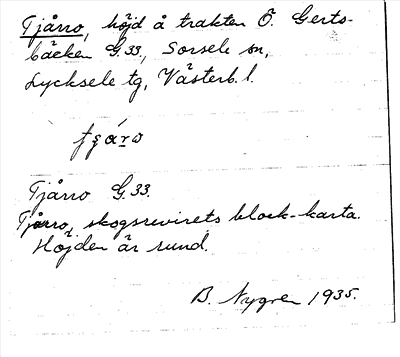 Tjårro, höjd å trakten Ö. Gerts-
bäcken G.33, Sorsele sn,
Lycksele tg, Västerb. l.
Tjårro G.33.
Tjårro, skogsrevirets block-karta.
Höjden är rund.
B. Nygren 1935.